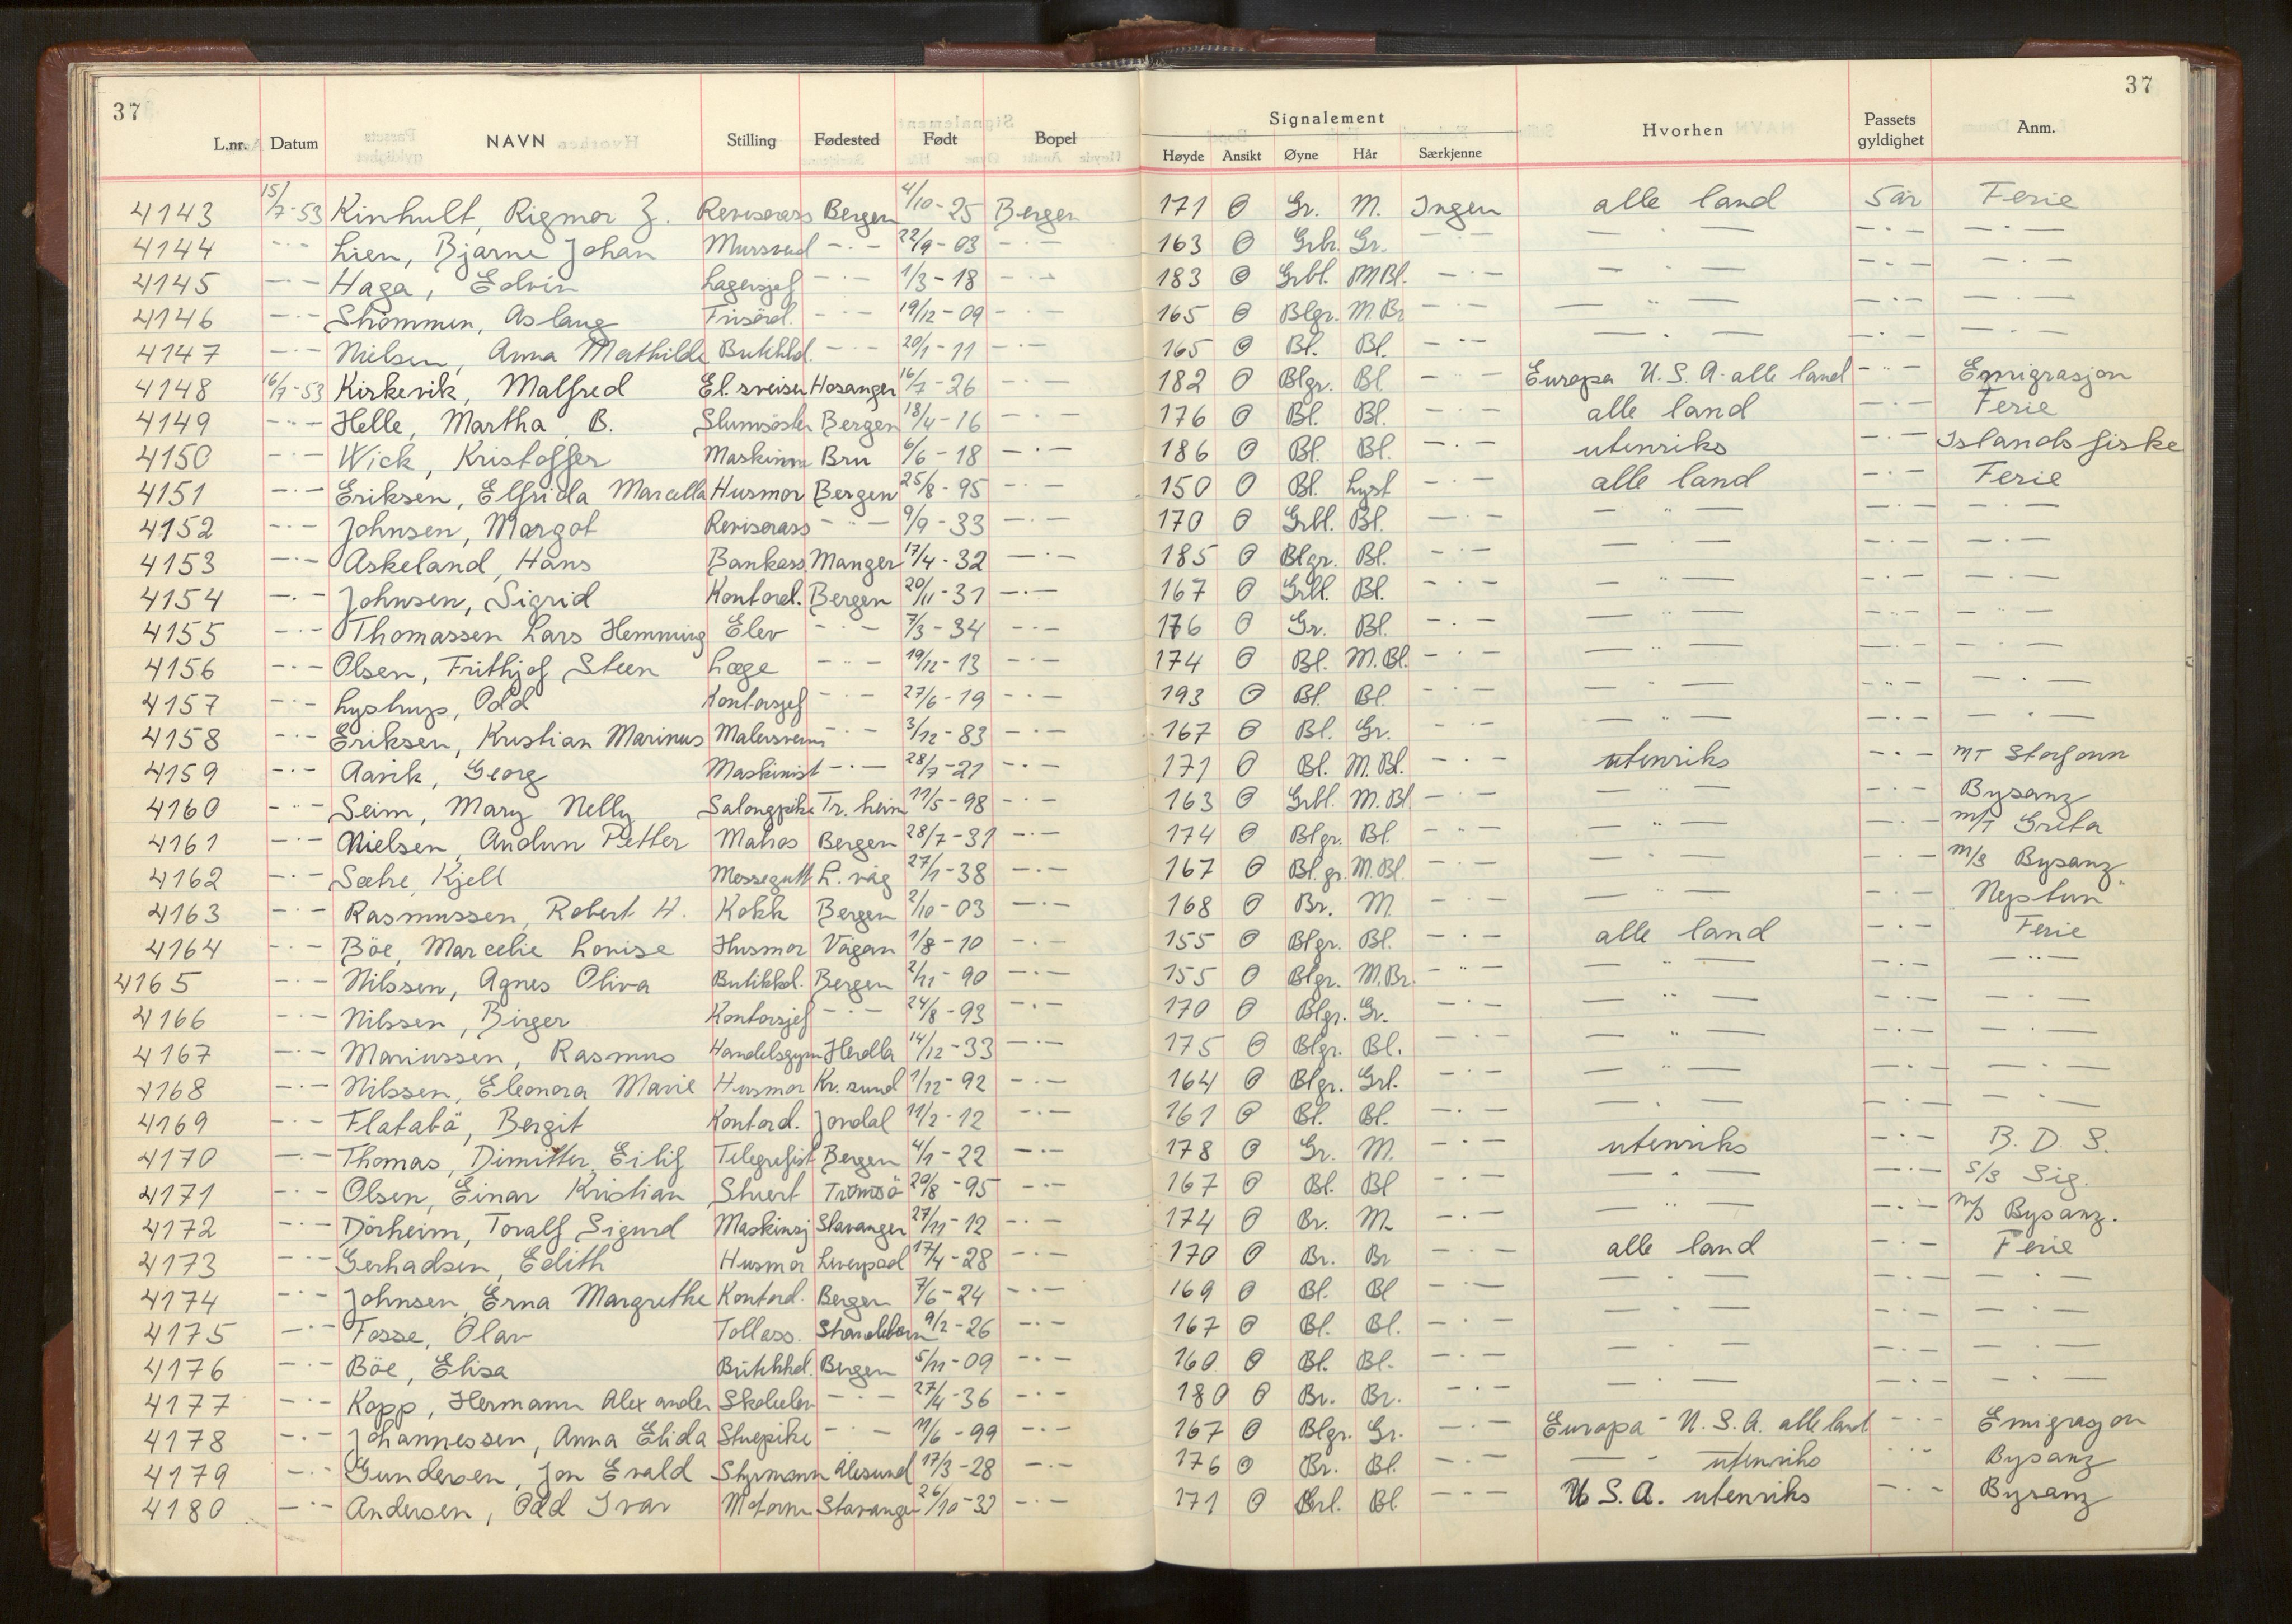 37 37
L.nr. Datum NAVN Stilling Fødested Født Bopel Signalement Hvorhen Passets gyldighet Anm.
Høyde Ansikt Øyne Hår Særkjenne
4143 15/7-53 Kinhult, Rigmor Z. Revisorass Bergen 4/10-25 Bergen 171 O Gr. M. Ingen alle land 5 år Ferie
4144 -"- Lien, Bjarne Johan Mursvend -"- 22/9-03 -"- 163 O Grbr. Gr. -"- -"- -"- -"-
4145 -"- Haga, Edvin Lagersjef -"- 1/3-18 -"- 183 O Grbl. M.Bl. -"- -"- -"- -"-
4146 -"- Strømmen, Aslaug Frisörd. -"- 19/12-09 -"- 165 O Blgr. M.Br -"- -"- -"- -"-
4147 -"- Nielsen, Anna Mathilde Butikkd. -"- 20/1-11 -"- 165 O Bl. Bl. -"- -"- -"- -"-
4148 16/7-53 Kirkevik, Malfred El.sveiser Hosanger 16/7-26 -"- 182 O Blgr. Bl. -"- Europa U.S.A. alle land -"- Emigrasjon
4149 -"- Helle, Martha B. Slumsöster Bergen 18/4-16 -"- 176 O Bl. Bl. -"- alle land -"- Ferie
4150 -"- Wick, Kristoffer Maskinm Bru 6/6-18 -"- 186 O Bl. Bl. -"- utenriks -"- Islands fiske
4151 -"- Eriksen, Elfrida Marcella Husmor Bergen 25/8-95 -"- 150 O Bl. Lyst -"- alle land -"- Ferie
4152 -"- Johnsen, Margot Revisorass -"- 9/9-33 -"- 170 O Grbl. Bl. -"- -"- -"- -"-
4153 -"- Askeland, Hans Bankass. Manger 17/4-32 -"- 185 O Blgr. Bl. -"- -"- -"- -"-
4154 -"- Johnsen, Sigrid Kontord. Bergen 20/11-31 -"- 167 O Grbl. Bl. -"- -"- -"- -"-
4155 -"- Thomassen Lars Hemming Elev -"- 7/3-34 -"- 176 O Gr. Bl. -"- -"- -"- -"-
4156 -"- Olsen, Frithjof Steen Læge -"- 19/12-13 -"- 174 O Bl. M.Bl. -"- -"- -"- -"-
4157 -"- Lystrup, Odd Kontorsjef -"- 27/6-19 -"- 193 O Bl. Bl. -"- -"- -"- -"-
4158 -"- Eriksen, Kristian Marinus Malersvenn -"- 3/12-83 -"- 167 O Bl. Gr. -"- -"- -"- -"-
4159 -"- Aarik, Georg Maskinist -"- 28/7-21 -"- 171 O Bl. M.Bl. -"- utenriks -"- M/T Storfonn
4160 -"- Seim, Mary Nelly Salongpike Tr.heim 11/5-98 -"- 163 O Grbl. M.Bl -"- -"- -"- Bysanz
4161 -"- Nielsen, Audun Petter Matros Bergen 28/7-31 -"- 174 O Blgr. Bl. -"- -"- -"- M/T Greta
4162 -"- Sætre, Kjell Messegutt L.våg 27/1-38 -"- 167 O Bl.gr. M.Bl. -"- -"- -"- M/S Bysanz
4163 -"- Rasmussen, Robert H. Kokk Bergen 2/10-03 -"- 168 O Br. M. -"- -"- -"- Neptun"
4164 -"- Böe, Marcelie Lovise Husmor Vågan 1/8-10 -"- 155 O Blgr. Bl. -"- alle land -"- Ferie
4165 -"- Nilssen, Agnes Oliva Butikkd. Bergen 2/11-90 -"- 155 O Blgr. M.Br. -"- -"- -"- -"-
4166 -"- Nilssen, Birger Kontorsjef -"- 24/8-93 -"- 170 O Blgr. Gr. -"- -"- -"- -"-
4167 -"- Mariussen, Rasmus Handelsgym Herdla 14/12-33 -"- 175 O Blgr. Bl. -"- -"- -"- -"-
4168 -"- Nilssen, Eleonora Marie Husmor Kr.sund 1/12-92 -"- 164 O Blgr. Grl. -"- -"- -"- -"-
4169 -"- Flatabö, Bergit Kontord. Jondal 11/2-12 -"- 161 O Bl. Bl. -"- -"- -"- -"-
4170 -"- Thomas, Dimitter Eilif Telegrafist Bergen 4/1-22 -"- 178 O Gr. M. -"- utenriks -"- B.D.S.
4171 -"- Olsen, Einar Kristian Stuert Tromsö 20/8-95 -"- 167 O Bl. Bl -"- -"- -"- S/S Sig.
4172 -"- Dörheim, Toralf Sigurd Maskinsj Stavanger 27/11-12 -"- 174 O Br. M -"- -"- -"- M/S Bysanz.
4173 -"- Gerhadsen, Edith Husmor Liverpool 17/4-28 -"- 170 O Br. Br -"- alle land -"- Ferie
4174 -"- Johnsen, Erna Margrethe Kontord. Bergen 7/6-24 -"- 169 O Bl. Bl -"- -"- -"- -"-
4175 -"- Fosse, Olav Tollass. Strandebarm 9/2-26 -"- 167 O Bl. Bl. -"- -"- -"- -"-
4176 -"- Böe, Elisa Butikkd. Bergen 5/11-09 -"- 160 O Bl. Bl. -"- -"- -"- -"-
4177 -"- Kopp, Hermann Alexander Skoleelev -"- 27/4-36 -"- 180 O Br. Br. -"- -"- -"- -"-
4178 -"- Johannessen, Anna Elida Stuepike -"- 11/6-99 -"- 167 O Blgr. Gr. -"- Europa - U.S.A. alle land -"- Emigrasjon
4179 -"- Gundersen, Jon Evald Styrmann Ålesund 17/3-28 -"- 176 O Br. Bl. -"- -"- utenriks -"- Bysanz
4180 -"- Andersen, Odd Ivar Motorm Stavanger 26/10-32 -"- 171 O Brl. Bl. -"- U.S.A. utenriks -"- Bysanz